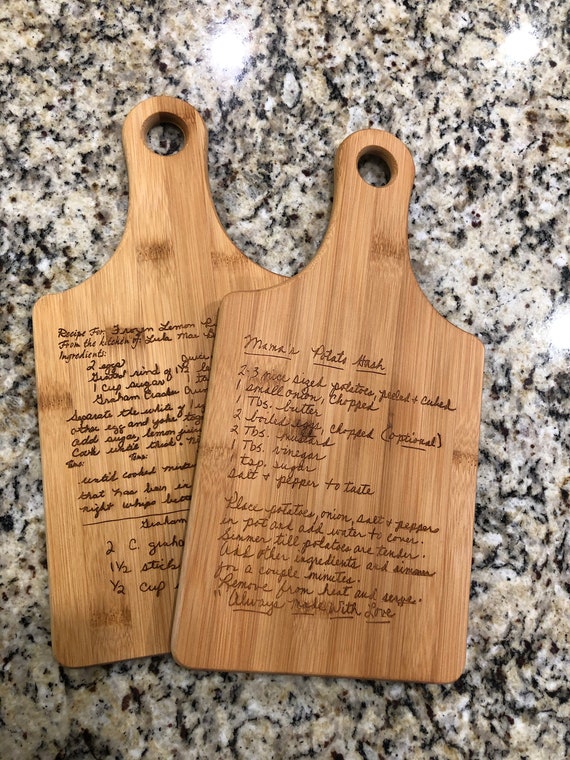 Recipe For: Frozen Lemon
From the kitchen of: Lula Mae
Ingredients:
2 eggs Juice
Grated rind of 1½
1 Cup sugar 1
Graham Cracker
Separate the white &
other egg and yoke
add sugar, lemon juice
Cook until thick.
until cooked
that has been in
night whips
Graham
2 C. graham
1½ stick
½ cup
Mama's Potato Hash
2-3 nice sized potatoes, peeled & cubed
1 small onion, chopped
1 Tbs. butter
2 boiled eggs, chopped (optional)
2 Tbs. mustard
1 Tbs. vinegar
1 tsp. sugar
Salt & pepper to taste
Place potatoes, onion, salt & pepper
in pot and add water to cover.
Simmer till potatoes are tender.
Add other ingredients and simmer
for a couple minutes.
Remove from heat and serve.
"Always Made With Love